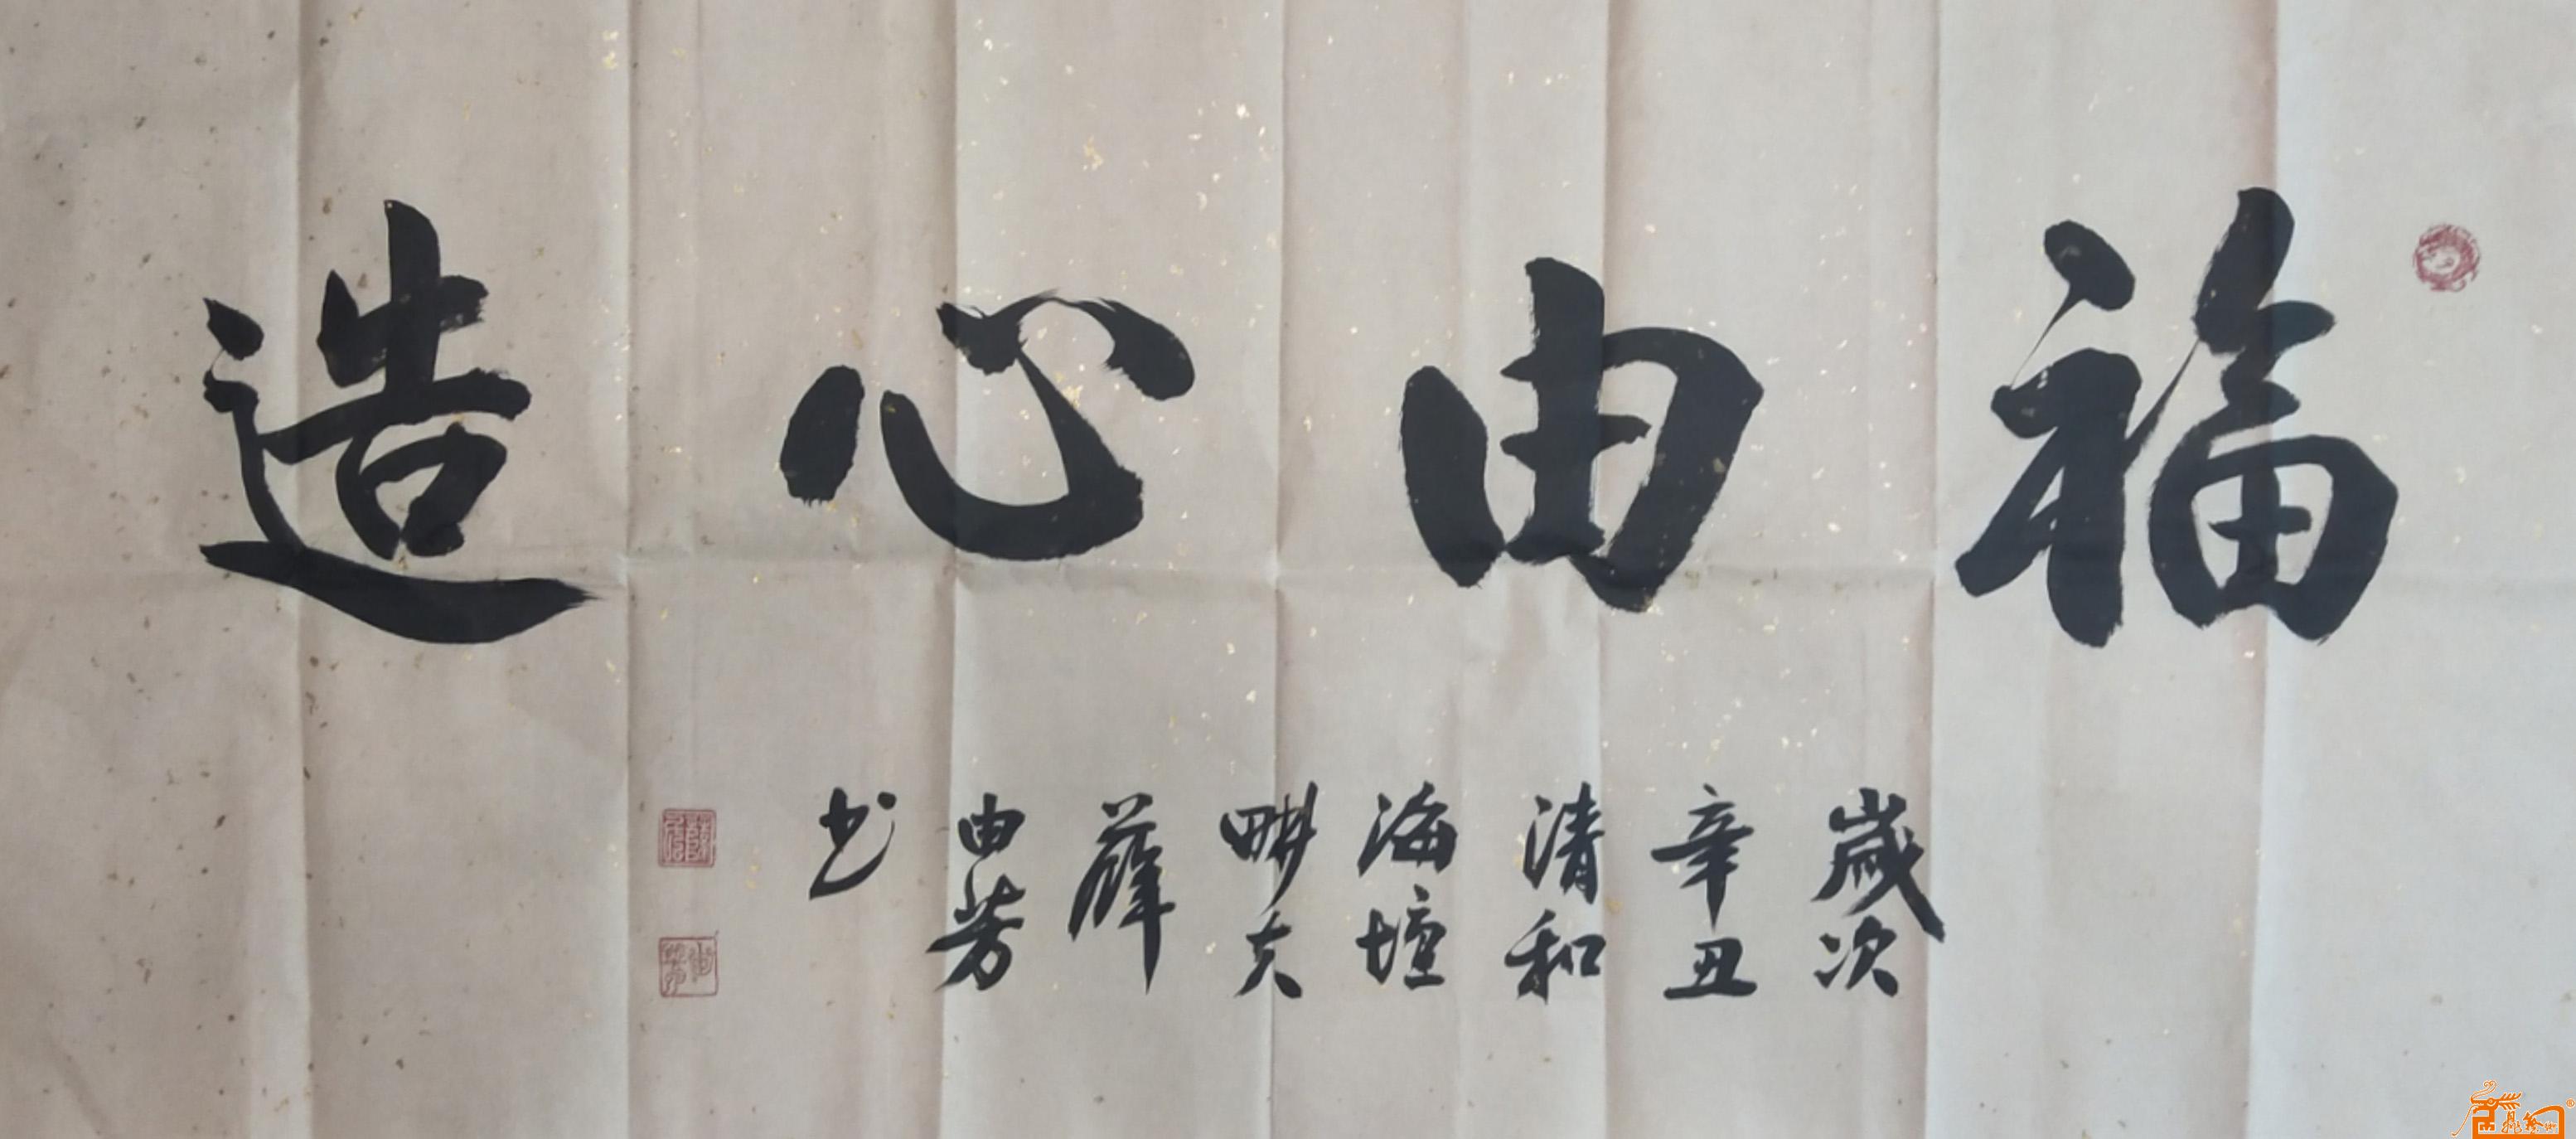 福由心造
歲次
辛丑
清和
海壇
耕夫
薛
由芳
书